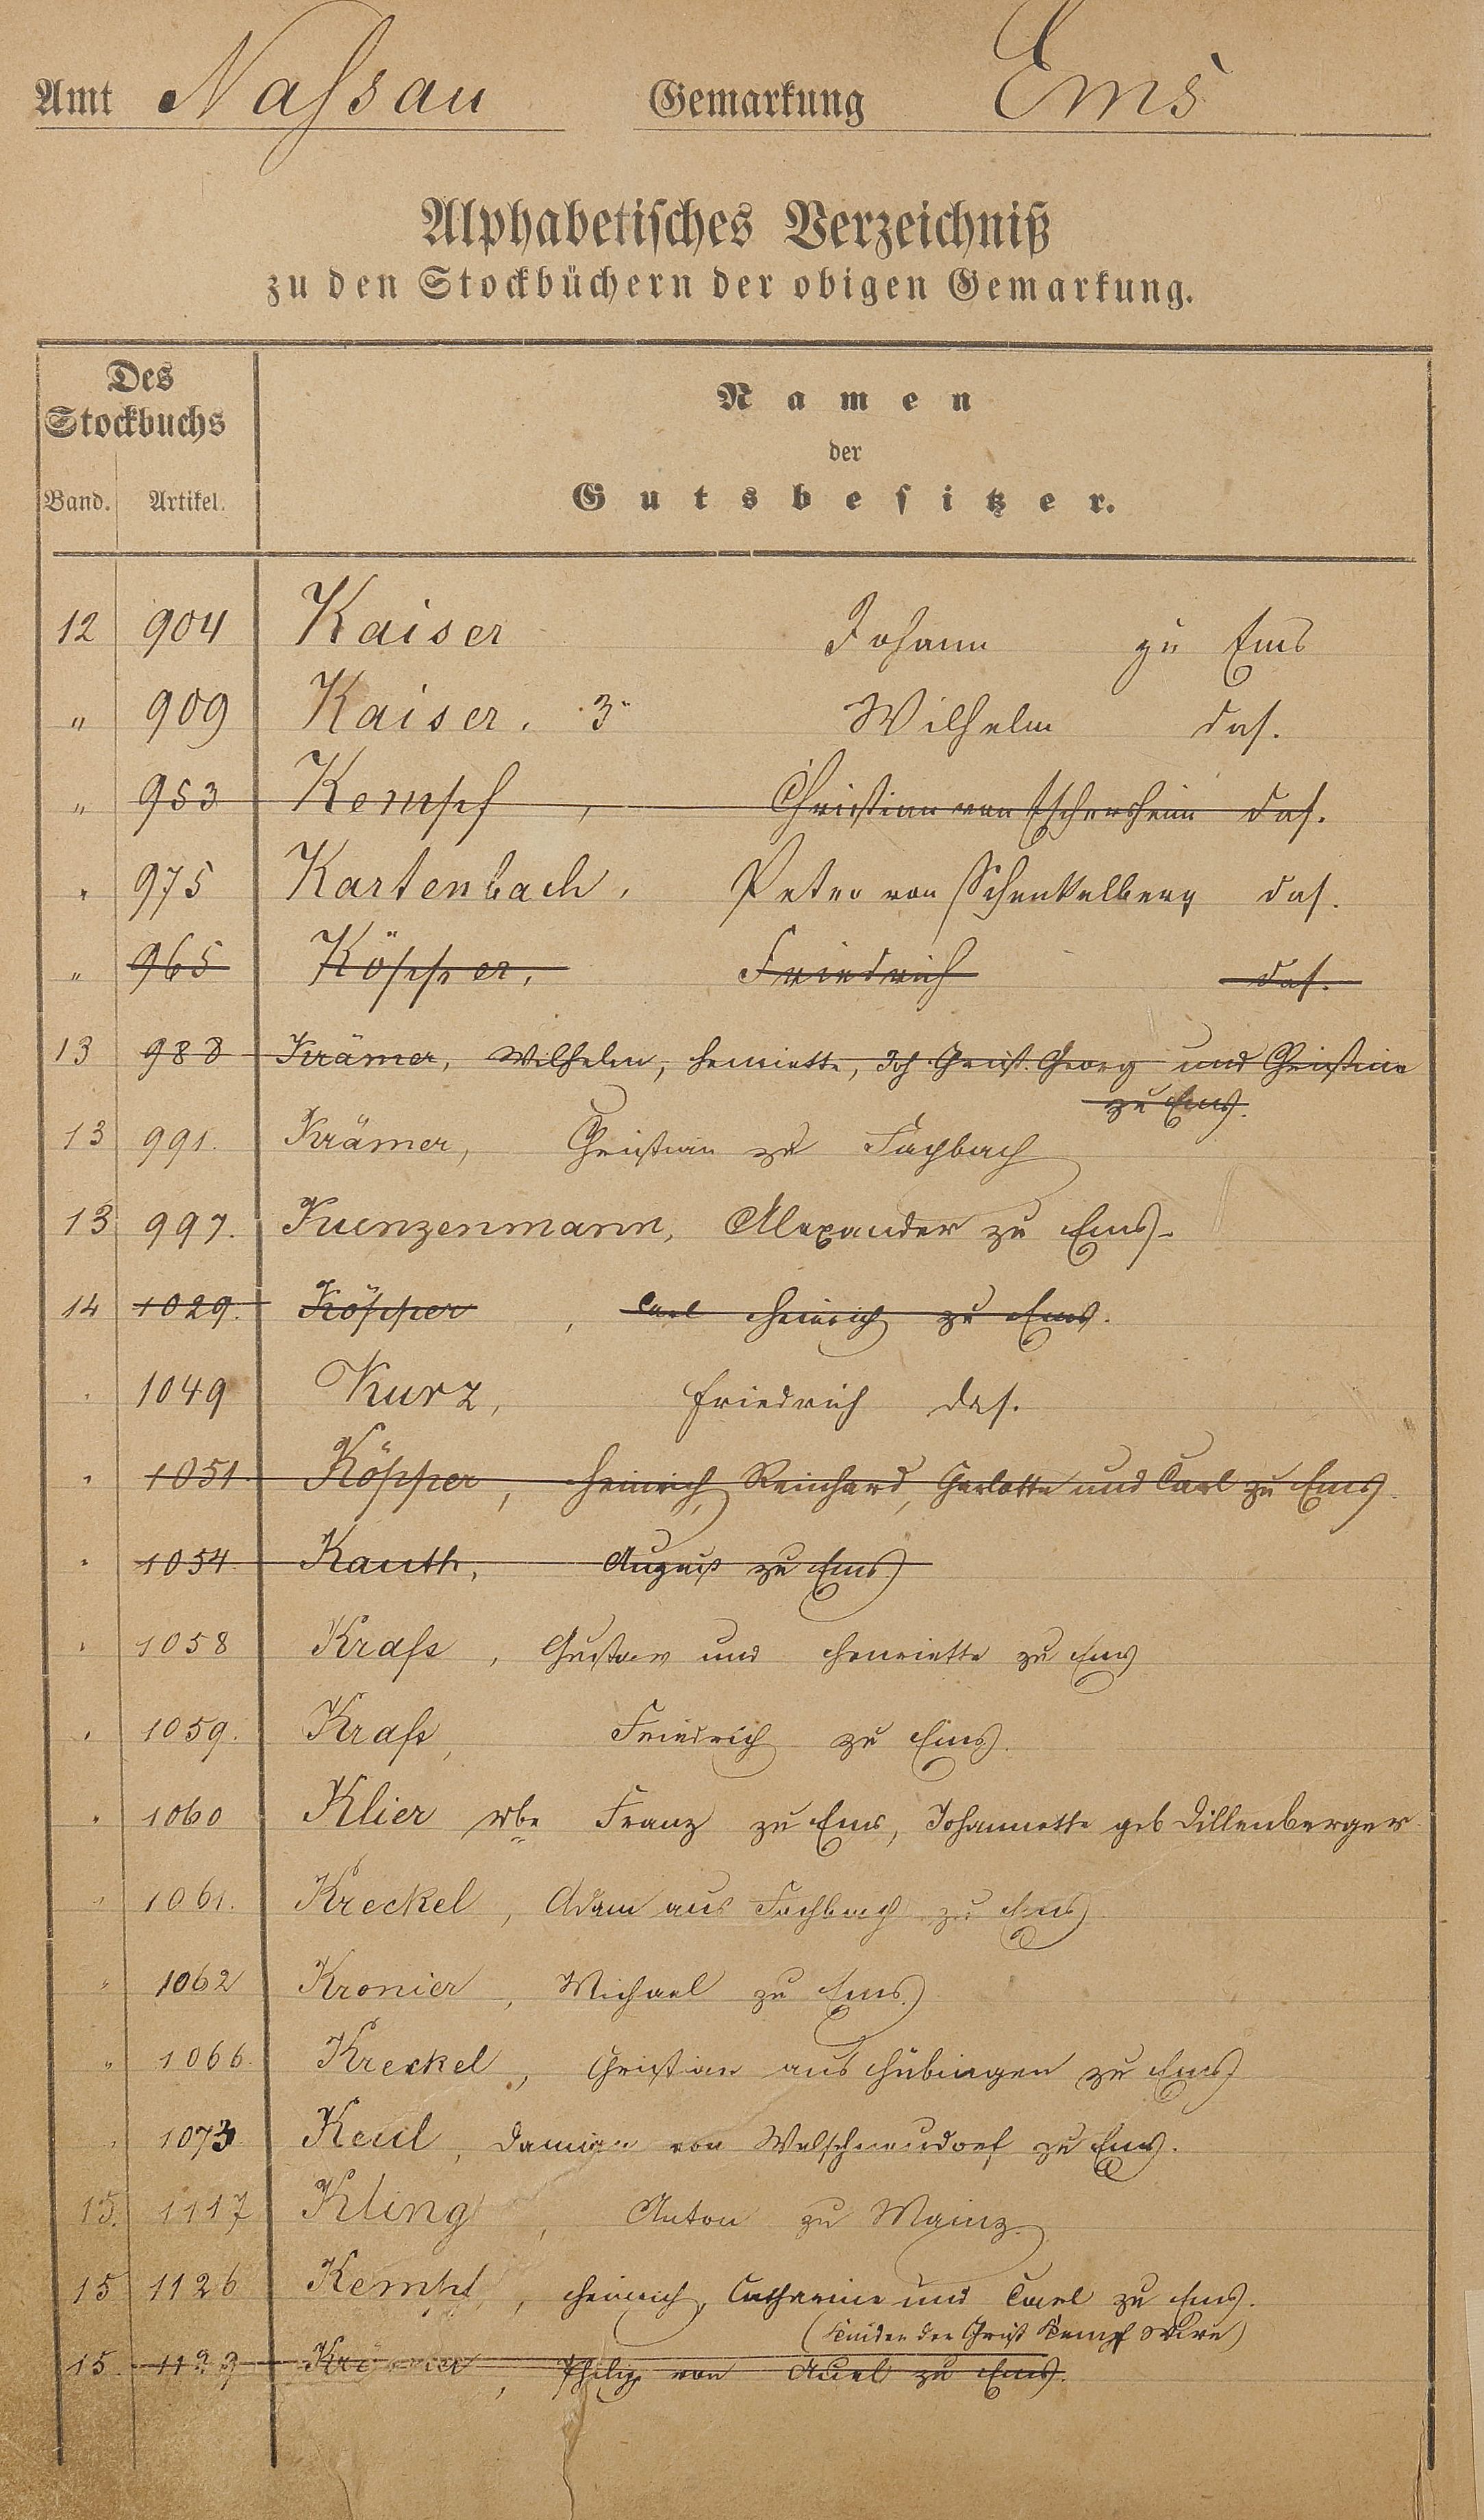 Amt Naſsau Gemarkung Ems
Alphabetiſches Verzeichniß
zu den Stockbüchern der obigen Gemarkung.
Des
Stockbuchs
Band. Artikel.
Namen
der
Gutsbeſitzer.
12 904 Kaiser Johann zu Ems
" 909 Kaiser, 3r Wilhelm daſ.
" 953 Kempf, Christian von Eschersheim daſ.
" 975 Kartenbach, Peter von Schenkelberg daſ.
" 965 Köpper, Friedrich daſ.
13 988 Krämer, Wilhelm, Henriette, Joh. Christ. Georg und Christine
zu Ems.
13 991. Krämer, Christian zu Fachbach
13 997. Kuenzenmann, Alexander zu Ems.
14 1029. Köpper, Carl Heinrich zu Ems.
" 1049 Kurz, Friedrich daſ.
" 1051. Köpper, Heinrich, Reinhard, Charlotte und Carl zu Ems.
" 1054. Kauth, August zu Ems
" 1058 Kraſs, Gustav und Henriette zu Ems
" 1059. Kraſs, Friedrich zu Ems.
" 1060 Klier Wbe Franz zu Ems, Johannette geb Dillenberger.
" 1061. Kreckel, Adam aus Fachbach zu Ems
" 1062 Kronier, Michael zu Ems.
" 1066. Kreckel, Christian aus Hübingen zu Ems
" 1073. Keul, Damian von Welschneudorf zu Ems.
15. 1117 Kling, Anton zu Mainz.
15 1126 Kempf, Heinrich, Catharine und Carl zu Ems.
(Kinder der Christ Kempf Wwe)
15. Philip von Auel zu Ems.